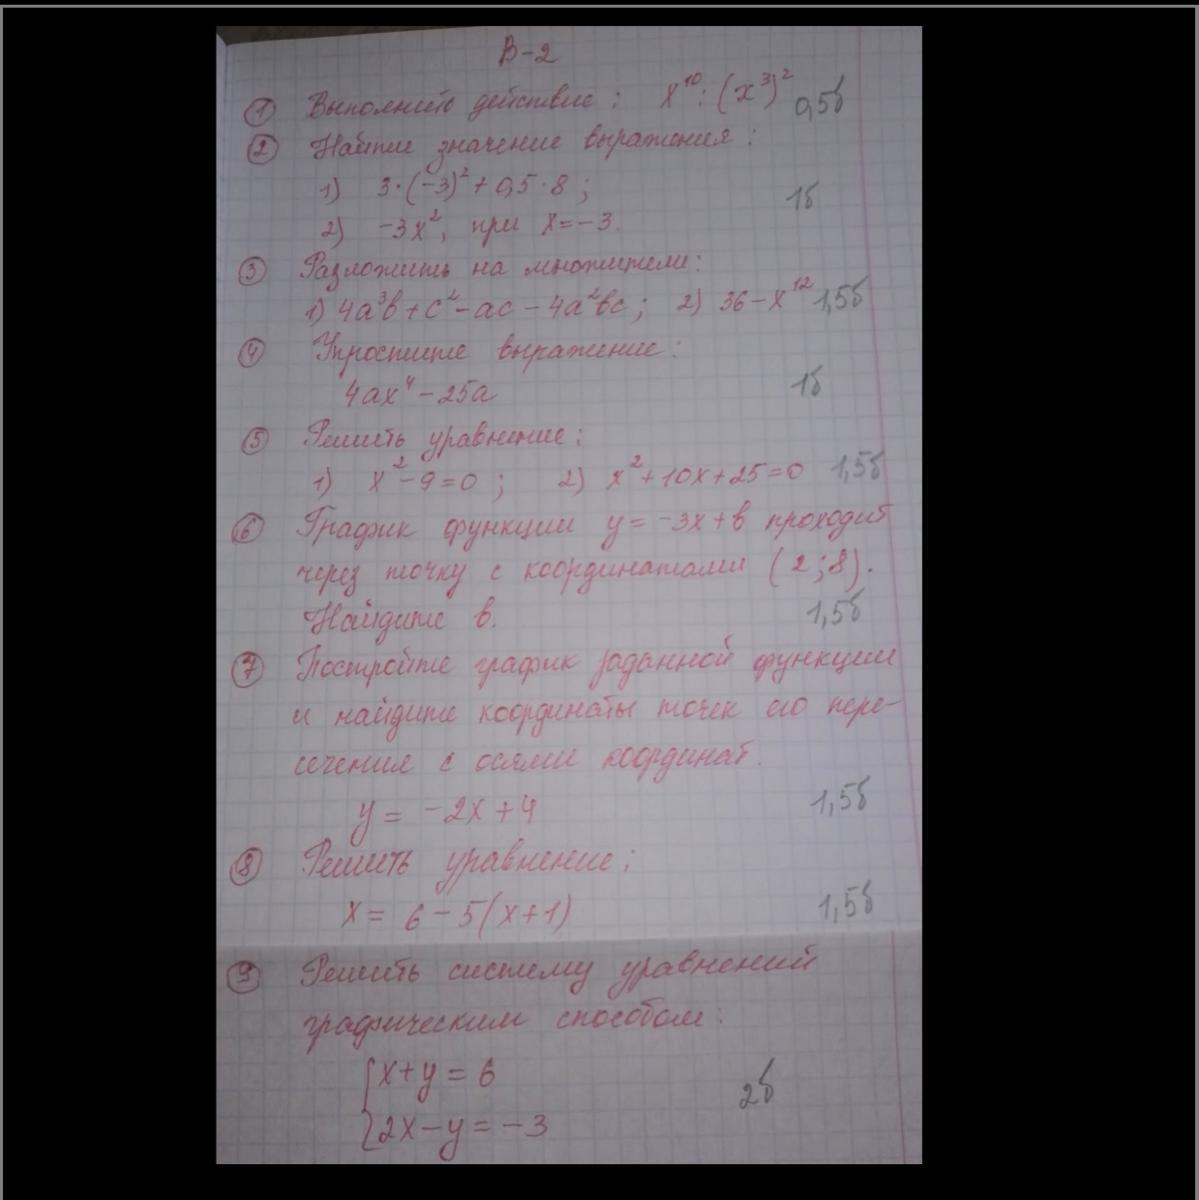 В-2
① Выполнить действие: x¹⁰:(x³)² 0,5б
② Найти значение выражения:
1) 3·(-3)²+0,5·8;
1б
2) -3x², при x=-3.
③ Разложить на множители:
1) 4a³b+c²-ac-4a²bc; 2) 36-x¹² 1,5б
④ Упростите выражение:
4ax⁴-25a 1б
⑤ Решить уравнение:
1) x²-9=0; 2) x²+10x+25=0 1,5б
⑥ График функции y=-3x+b проходит
через точку с координатами (2;8).
Найдите b. 1,5б
⑦ Постройте график заданной функции
и найдите координаты точек его пере-
сечения с осями координат.
y=-2x+4 1,5б
⑧ Решить уравнение:
x=6-5(x+1) 1,5б
⑨ Решить систему уравнений
графическим способом:
{x+y=6
2б
2x-y=-3